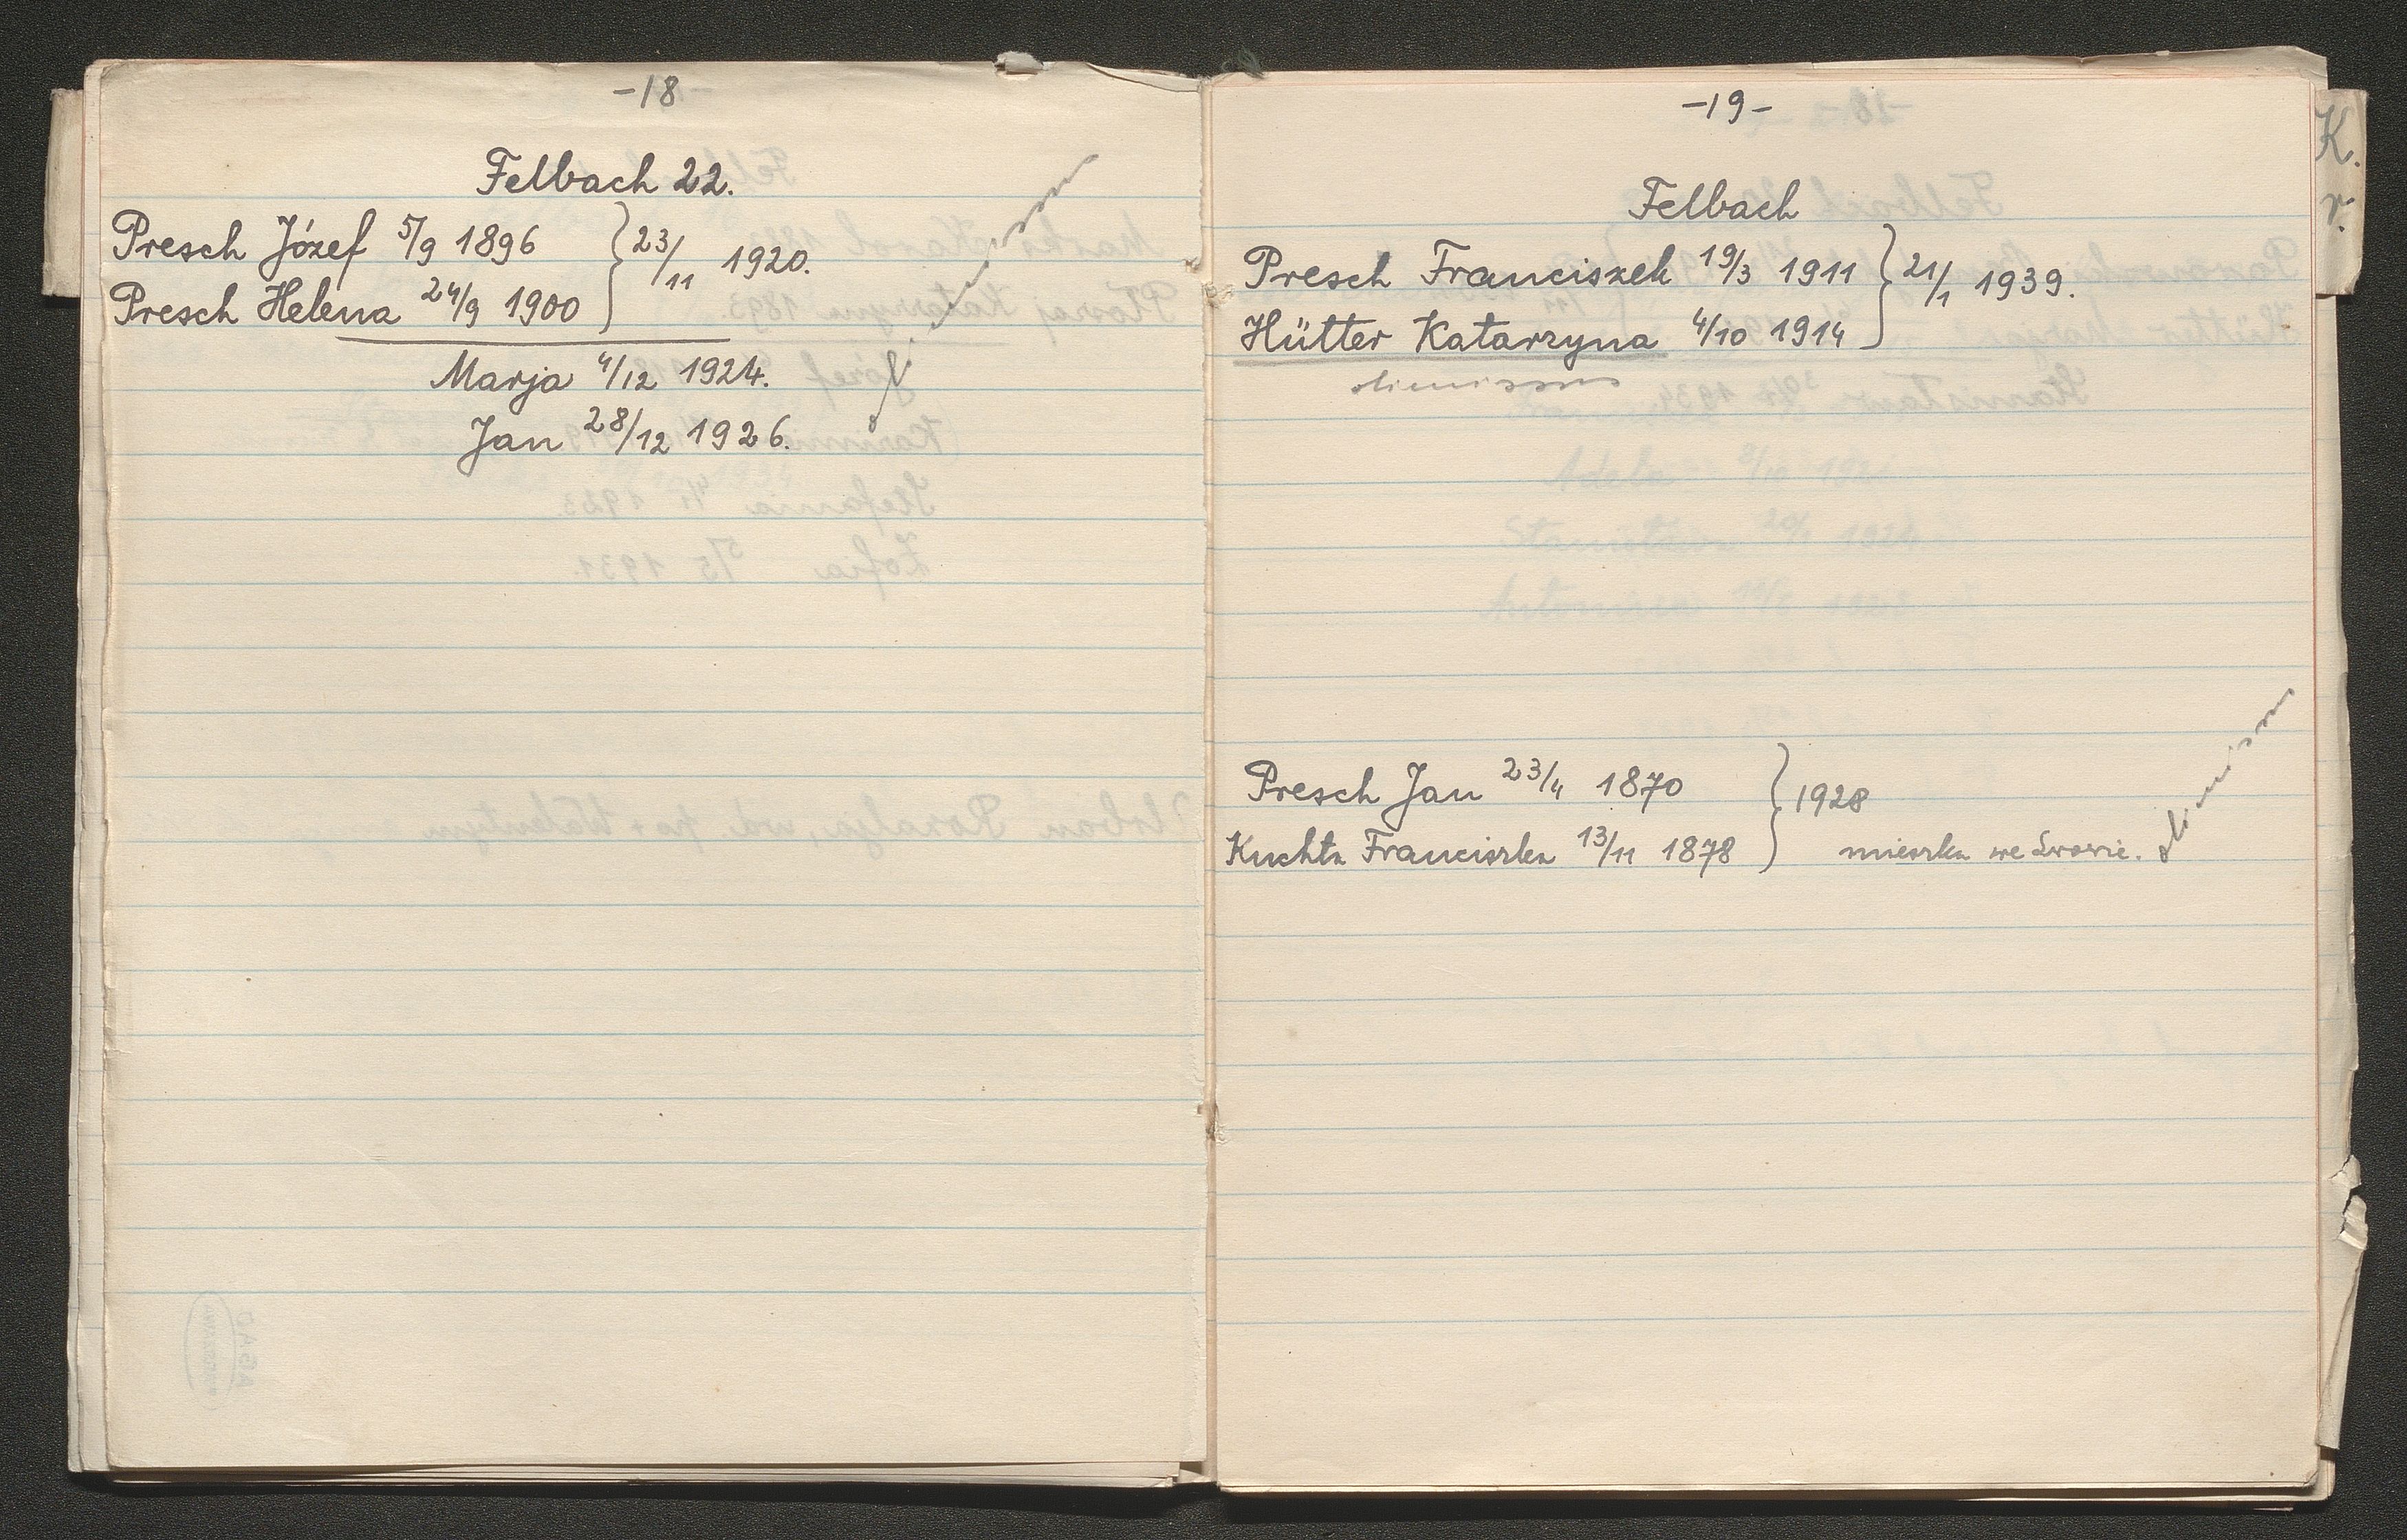 -18-
Felbach 22.
Presch Józef 5/9 1896 } 23/11 1920.
Presch Helena 24/9 1900
Marja 4/12 1924.
Jan 28/12 1926.
-19-
Felbach
Presch Franciszek 19/3 1911 } 21/1 1939.
Hütter Katarzyna 4/10 1914
Presch Jan 23/4 1870 } 1928
Kuchta Franciszka 13/11 1878 mieszka we Lwowie.
K.
r.